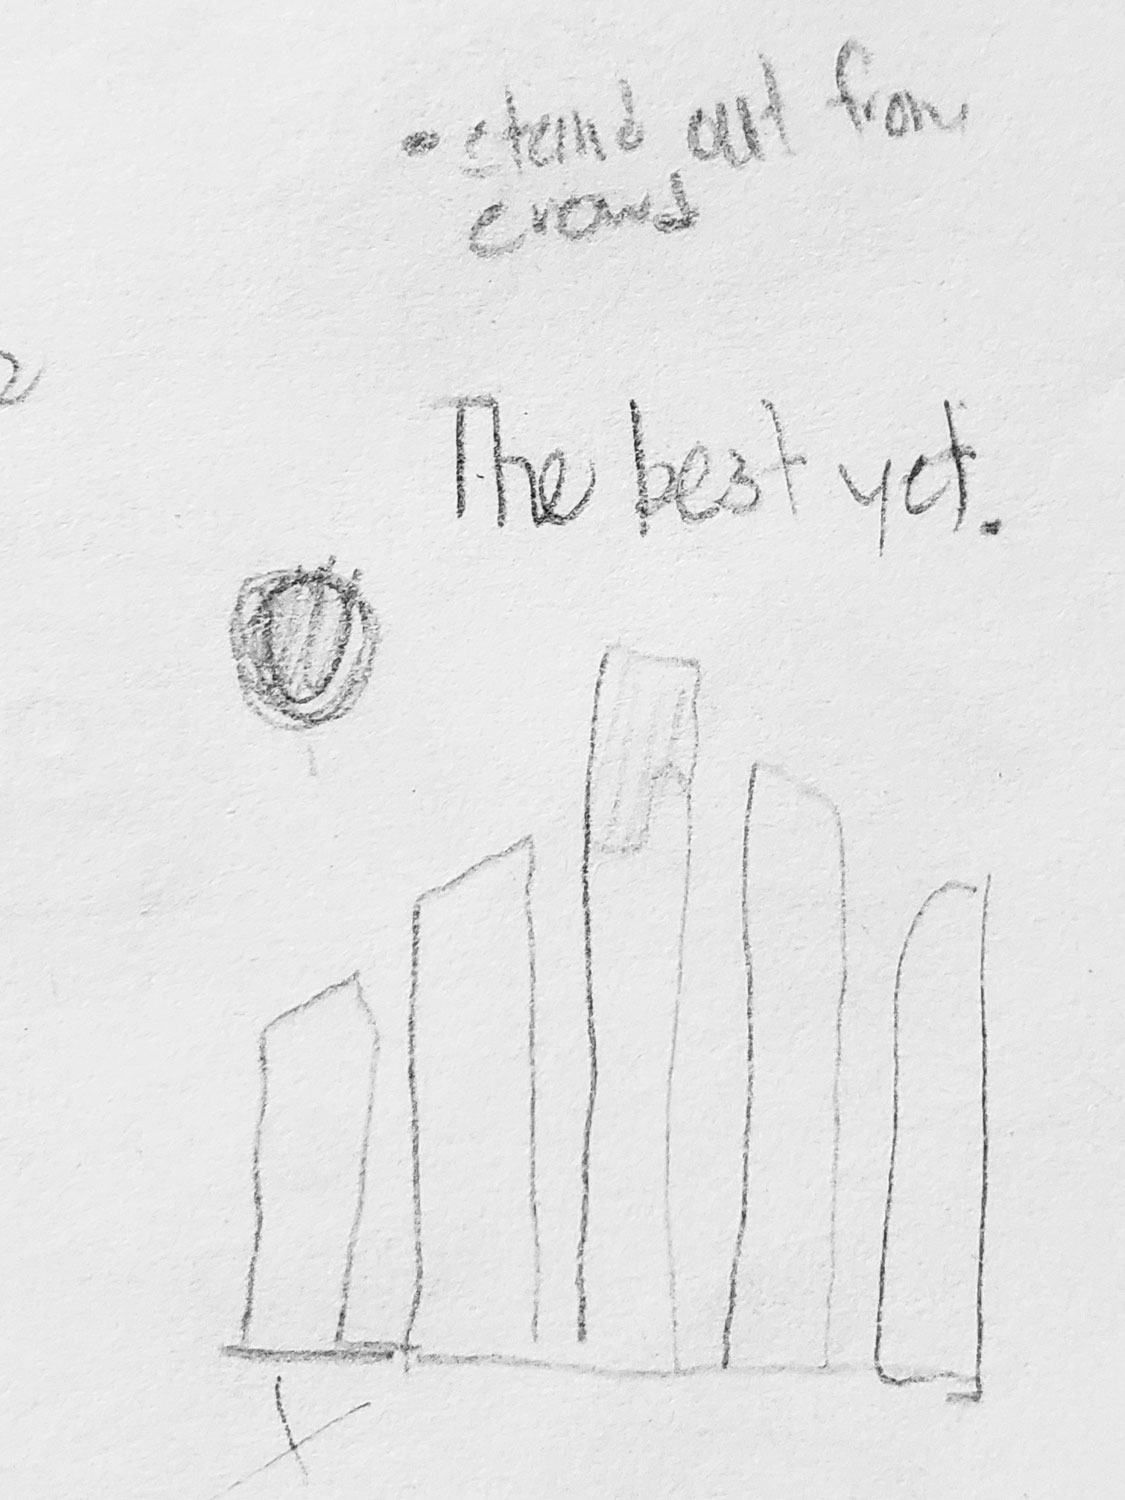 • stand out from
crowd
The best yet.
X